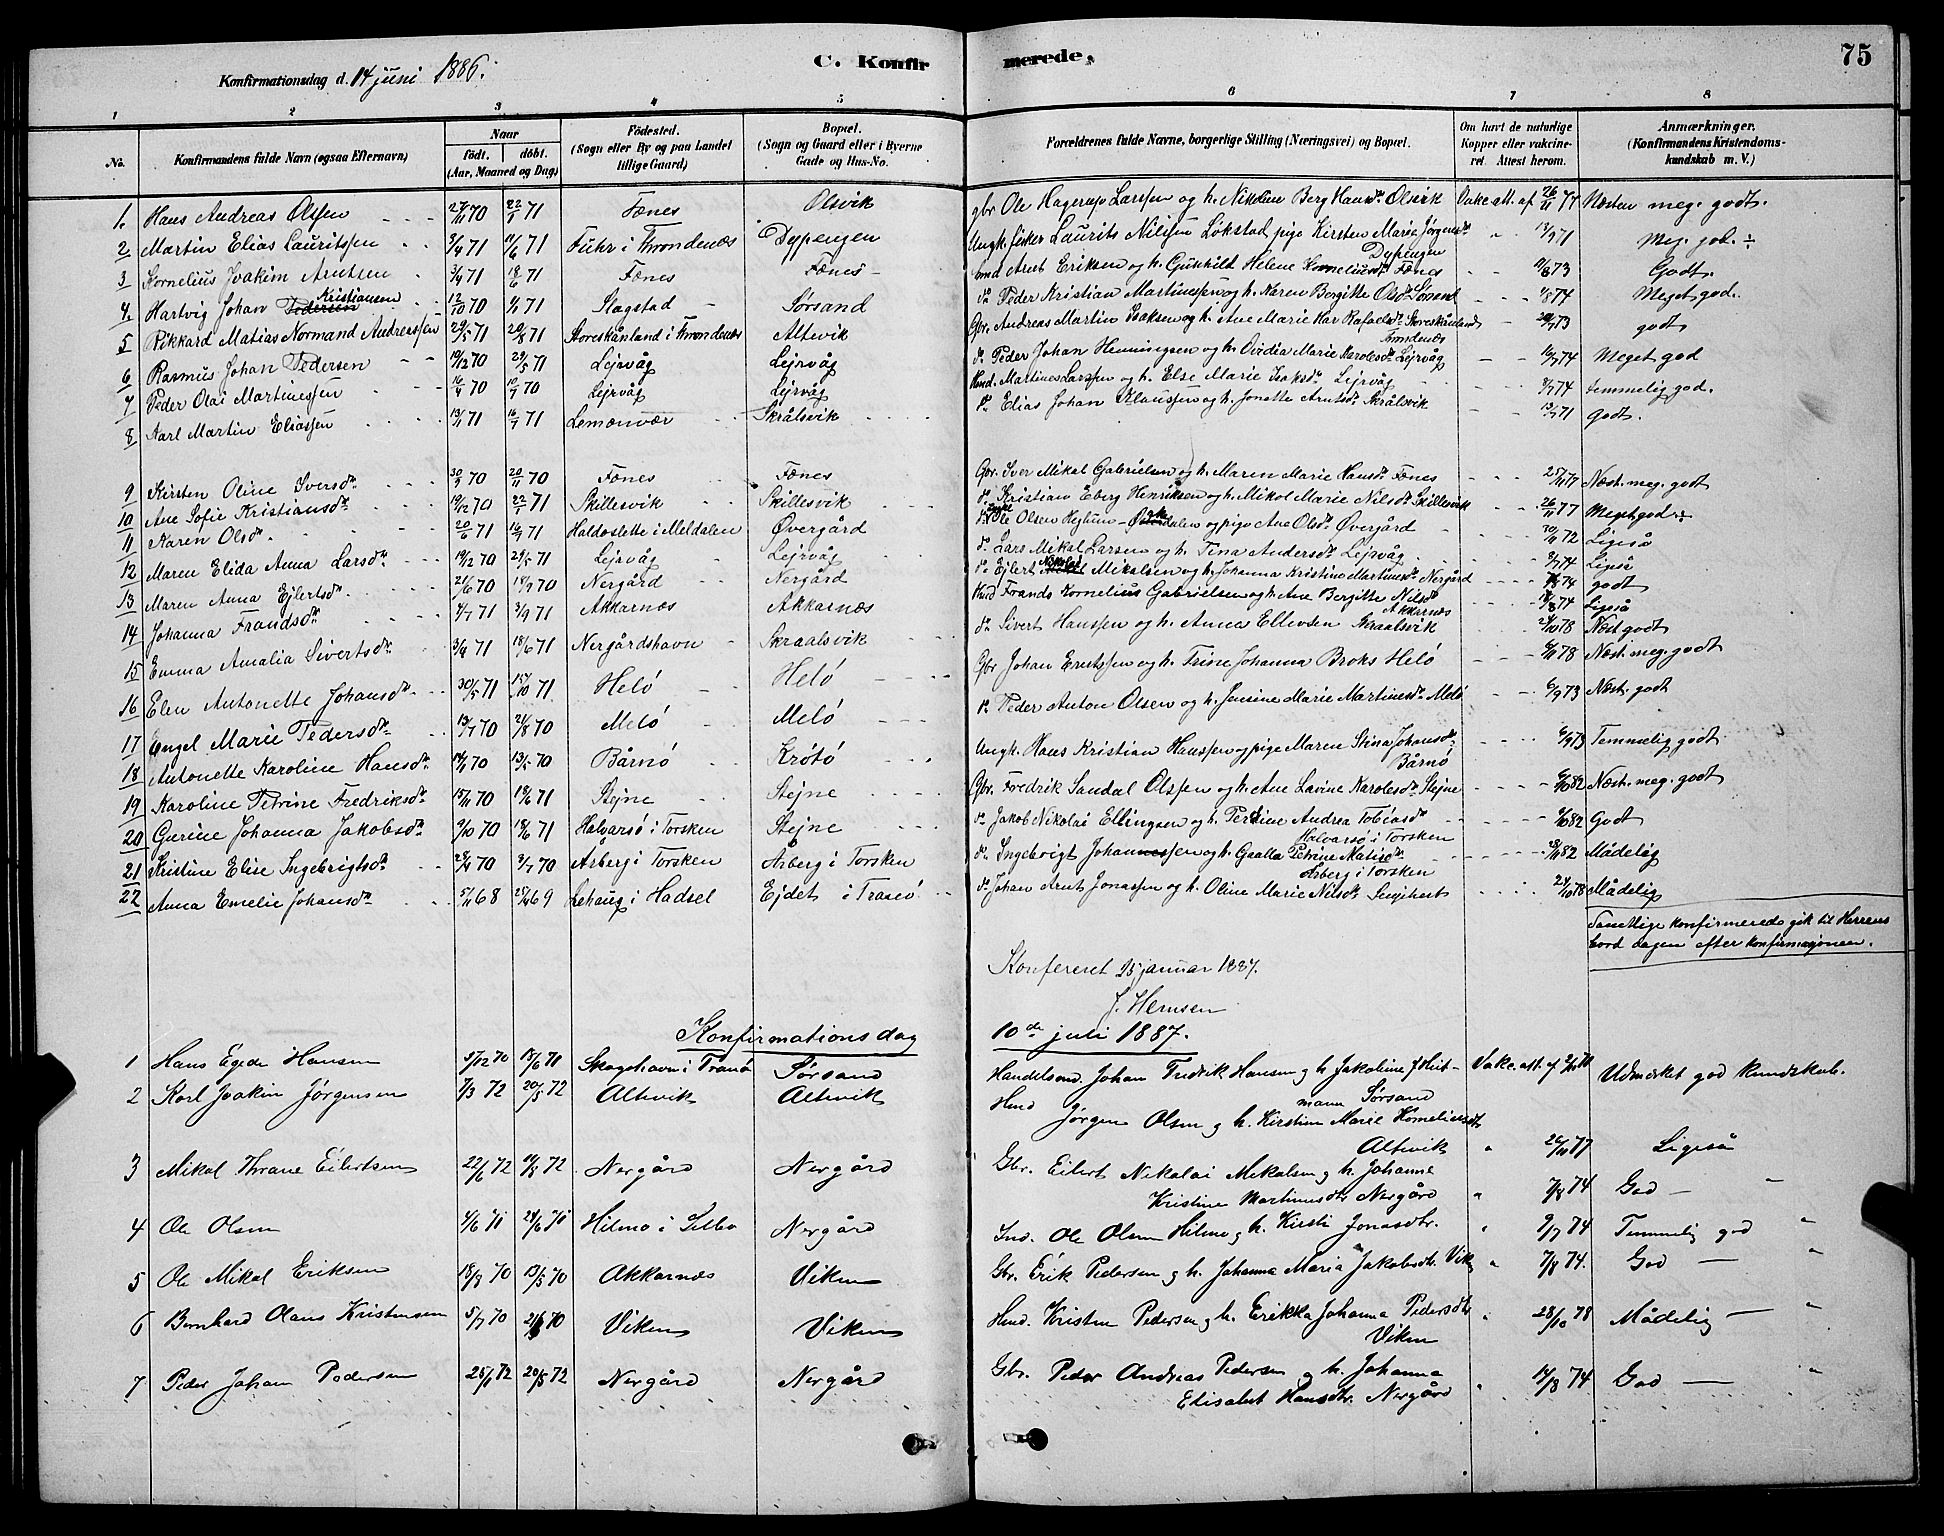 Konfirmationsdag d. 14 juni 1886.
C. Konfir merede,
75
1 2 3 4 5 6 7 8
No.
Konfirmandens fulde Navn (ogsaa Efternavn)
Naar
födt. döbt.
(Aar, Maaned og Dag)
Födested.
(Sogn eller By og paa Landet
tillige Gaard)
Bopæl.
(Sogn og Gaard eller i Byerne
Gade og Hus-No.
Forældrenes fulde Navne, borgerlige Stilling (Næringsvei) og Bopæl.
Om havt de naturlige
Kopper eller vakcine-
ret. Attest herom.
Anmærkninger.
(Konfirmandens Kristendoms-
kundskab m. V.)
1. Hans Andreas Olsen 27/11 70 22/1 71 Fænes Olsvik gbr. Ole Hagerup Larssen og h. Nikoline Berg Hansdr Olsvik Vakc. att. af 26/11 77 Næsten meg. godt.
2 Martin Elias Lauritssen 3/4 71 11/6 71 Fuhr i Trondenæs Dypengen Ungk. fisker Laurits Nilsen Løkstad pige Kirsten Marie Jörgensdr 13/9 71 Meg. god. ÷
Dypengen
3 Kornelius Joakim Arntsen 3/4 71 18/6 71 Fænes Fænes Arnt Eriksen og h. Gunhild Helene Korneliusdr Fænes 11/8 73 Godt.
4. Hartvig Johan Pedersen Kristiansen 12/10 70 1/1 71 Slagstad Sørsand dr Peder Kristian Martinussen og h. Karen Bergitte Olsdr Sørsand 1/8 74 Meget god.
5 Rikkard Matias Normand Andreassen 29/5 71 20/8 71 Storeskånland i Trondenæs Altevik Gbr. Andreas Martin Isaksen og h. Ane Marie Kar Rafaelsdr Storeskånland 73 godt
Trondenæs
6 Rasmus Johan Pedersen 19/12 70 29/5 71 Lejrvåg Lejrvåg dr Peder Johan Henningsen og h. Ovidia Marie Karolesdr Lejrvåg 10/7 74 Meget god
7 Peder Olai Martinussen 16/4 70 10/7 70 Lejrvåg Lejrvåg Hmd. Martines Larssen og h. Else Marie Isaksdr Lejrvåg 9/7 74 temmelig god.
8 Karl Martin Eliassen 13/1 71 16/7 71 Lemænvær Skrålsvik dr Elias Johan Klaussen og h. Jonette Arntsdr Skrålsvik 13/7 71 godt.
9 Kirsten Oline Iversdr 30/9 70 20/11 70 Fænes Fænes Gbr. Iver Mikal Gabrielsen og h. Maren Marie Hansdr Fænes 25/11 77 Næst. meg. godt
10 Ane Sofie Kristiansdr 19/12 70 22/1 71 Skillesvik Skillesvik dr Kristian Eberg Henriksen og h. Mikol Marie Nilsdr Skillesvik 26/11 77 Meget god ÷
11 Karen Olsdr 20/6 71 16/7 71 Haldoslette i Meldalen Øvergård Ole Olsen og pige Ane Olsdr Øvergård 70/11 72 Ligeså
12 Maren Elida Anna Larsdr 19/12 70 29/5 71 Lejrvåg Lejrvåg dr Lars Mikal Larsen og h. Tina Andersdr Lejrvåg 9/7 74 Ligeså
13 Maren Anna Ejlertsdr 21/6 70 18/9 70 Nergård Nergård dr Ejlert Nikolai Mikalsen og h. Johanna Kristine Martinesdr Nergård 74 godt
14 Johanna Frandsdr 4/7 71 3/9 71 Akkarnæs Akkarnæs Hmd Frands Kornelius Gabrielsen og h. Ane Bergitte Nilsdr 74 Ligeså
Akkarnæs
15 Emma Amalia Sivertsdr 3/4 71 18/6 71 Nergårdshavn Skraalsvik dr Sivert Hanssen og h. Anna Ellevsen Skraalsvik 21/10 78 Næst godt
16 Elen Antonette Johansdr 30/5 71 15/10 71 Helö Helö Gbr Johan Erntssen og h. Trine Johanna Broks Helö 78 Næst. meg. godt
17 Engel Marie Pedersdr 13/7 70 21/8 70 Melö Melö dr Peder Anton Olsen og h. Jensine Marie Martinesdr Melö 6/9 73 Næst. godt
18 Antonette Karoline Hansdr 14/1 70 13/5 70 Bårnö Krötö Ungk. Hans Kristian Hanssen og pige Maren Stina Johansdr 6/9 73 Temmelig godt
Bårnö
19 Karoline Petrine Fredriksdr 15/11 70 18/6 71 Stejne Stejne Gbr. Fredrik Sandal Olssen og h. Ane Lavine Karolesdr Stejne 6/10 82 Næst. meg. godt
20 Gurine Johanna Jakobsdr 9/10 70 18/6 71 Halvarsö i Torsken Stejne dr Jakob Nikolai Ellingsen og h. Perdine Andrea Tobiasdr 6/10 82 Godt
Halvarsö i Torsken
21 Kristine Elise Ingebrigtsdr 28/4 70 3/7 70 Årberg i Torsken Årberg i Torsken dr Ingebrigt Johannessen og h. Gaalla Petrine Matisdr 18/11 82 Mådelig
Årberg i Torsken
22 Anna Emelie Johansdr 5/11 68 25/4 69 Lehaug i Hadsel Ejdet i Tranö dr Johan Arnt Jonassen og h. Oline Marie Nilsdr 24/10 78 Mådelig
Samtlige konfirmerede gik til Herrens
bord dagen efter konfirmasjonen.
Konfereret 25 januar 1887.
J. Hemsen
Konfirmationsdag 10de juli 1887.
1 Hans Egede Hansen 5/12 70 18/6 71 Skogshavn i Tranö Sørsand Handelsmd. Johan Fredrik Hansen og h. Jakobine f. Heit- Vakc. att. af Udmerket god kundskab.
mann Sørsand
2 Karl Joakim Jørgensen 7/3 72 20/5 72 Altevik Altevik Hmd Jørgen Olsen og h. Kirstine Marie Korneliusdr
Altevik " 26/11 77 Ligeså
3 Mikal Thrane Eilertsen 22/6 72 11/8 72 Nergård Nergård Gbr. Eilert Nikolai Mikalsen og h. Johanne
Kristine Martinusdtr Nergård " 7/8 74 God — "
4 Ole Olsen 4/6 71 24/6 71 Hilmo i Selbo Nergård Ind. Ole Olsen Hilmo og h. Kirsti Jonasdtr. " 9/7 74 Temmelig god "
5 Ole Mikal Eriksen 18/3 70 13/5 70 Akkarnæs Viken Gbr. Erik Pedersen og h. Johanna Maria Jakobsdtr. Vik " 7/8 74. God — "
6 Bernhard Olaus Kristensen 5/7 70 70 Viken Viken Hmd. Kristen Pedersen og h. Erikka Johanna Pedersdtr " 28/10 78 Mådelig — "
Viken
7 Peder Johan Pedersen 25/1 72 20/5 72 Nergård Nergård Gbr. Peder Andreas Pedersen og h. Johanna
Elisabet Hansdtr. Nergård " 14/8 74 God — "